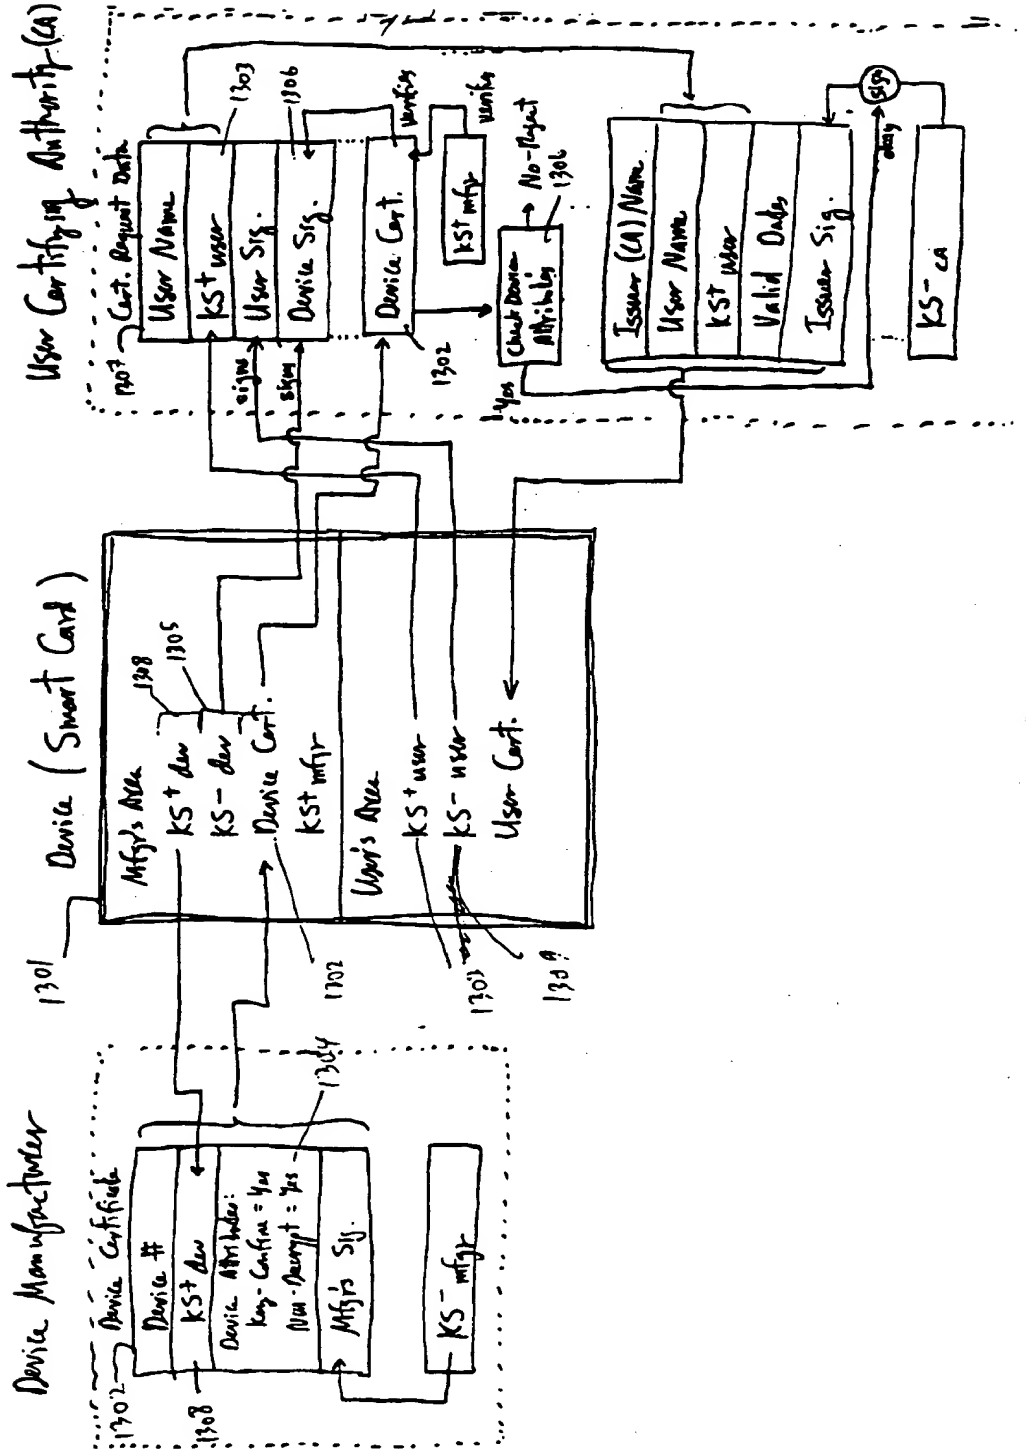 Device Manufacturer
1302
Device Certificate
Device #
KS+ dev
Device Attributes:
Key-Confine = Yes
Non-Decrypt = Yes
Mfgr's Sig.
1308
1304
KS- mfgr
Device (Smart Card)
1301
Mfgr's Area
KS+ dev
KS- dev
Device Cert.
KS+ mfgr
1308
1305
1302
User's Area
KS+ user
KS- user
User Cert.
1303
1309
User Certifying Authority (CA)
1307
Cert. Request Data
User Name
KS+ user
User Sig.
Device Sig.
1303
1306
signs
signs
Device Cert.
1302
verifies
KS+ mfgr
verifies
Check Device
Attributes
No-Reject
1306
Yes
Issuer (CA) Name
User Name
KS+ user
Valid Dates
Issuer Sig.
sign
okay
KS- CA